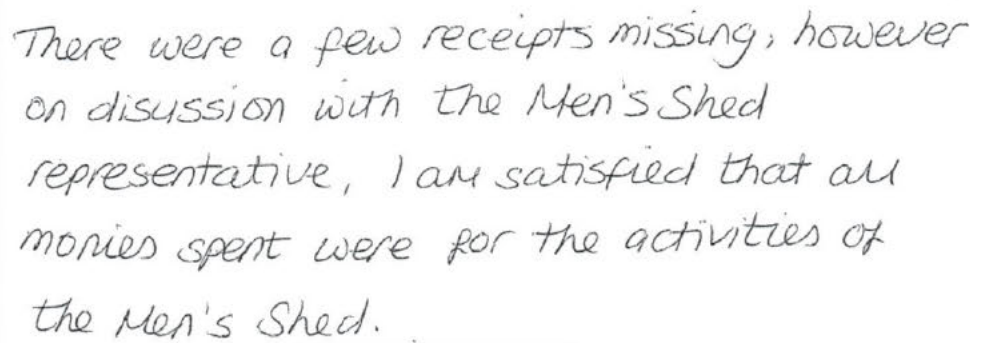 There were a few receipts missing, however
on disussion with the Men's Shed
representative, I am satisfied that all
monies spent were for the activities of
the Men's Shed.